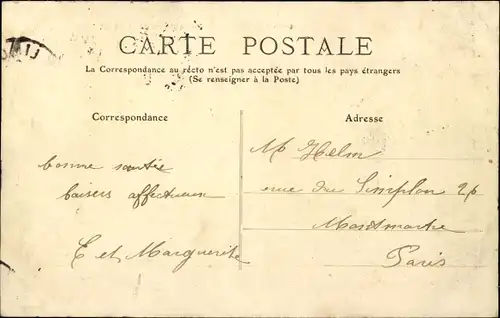 CARTE POSTALE
La Correspondance au recto n'est pas acceptée par tous les pays étrangers
(Se renseigner à la Poste)
Correspondance
Adresse
bonne santée
baisers affectueux
E et Marguerite
Helm
rue du Simplon 26
Montmartre
Paris